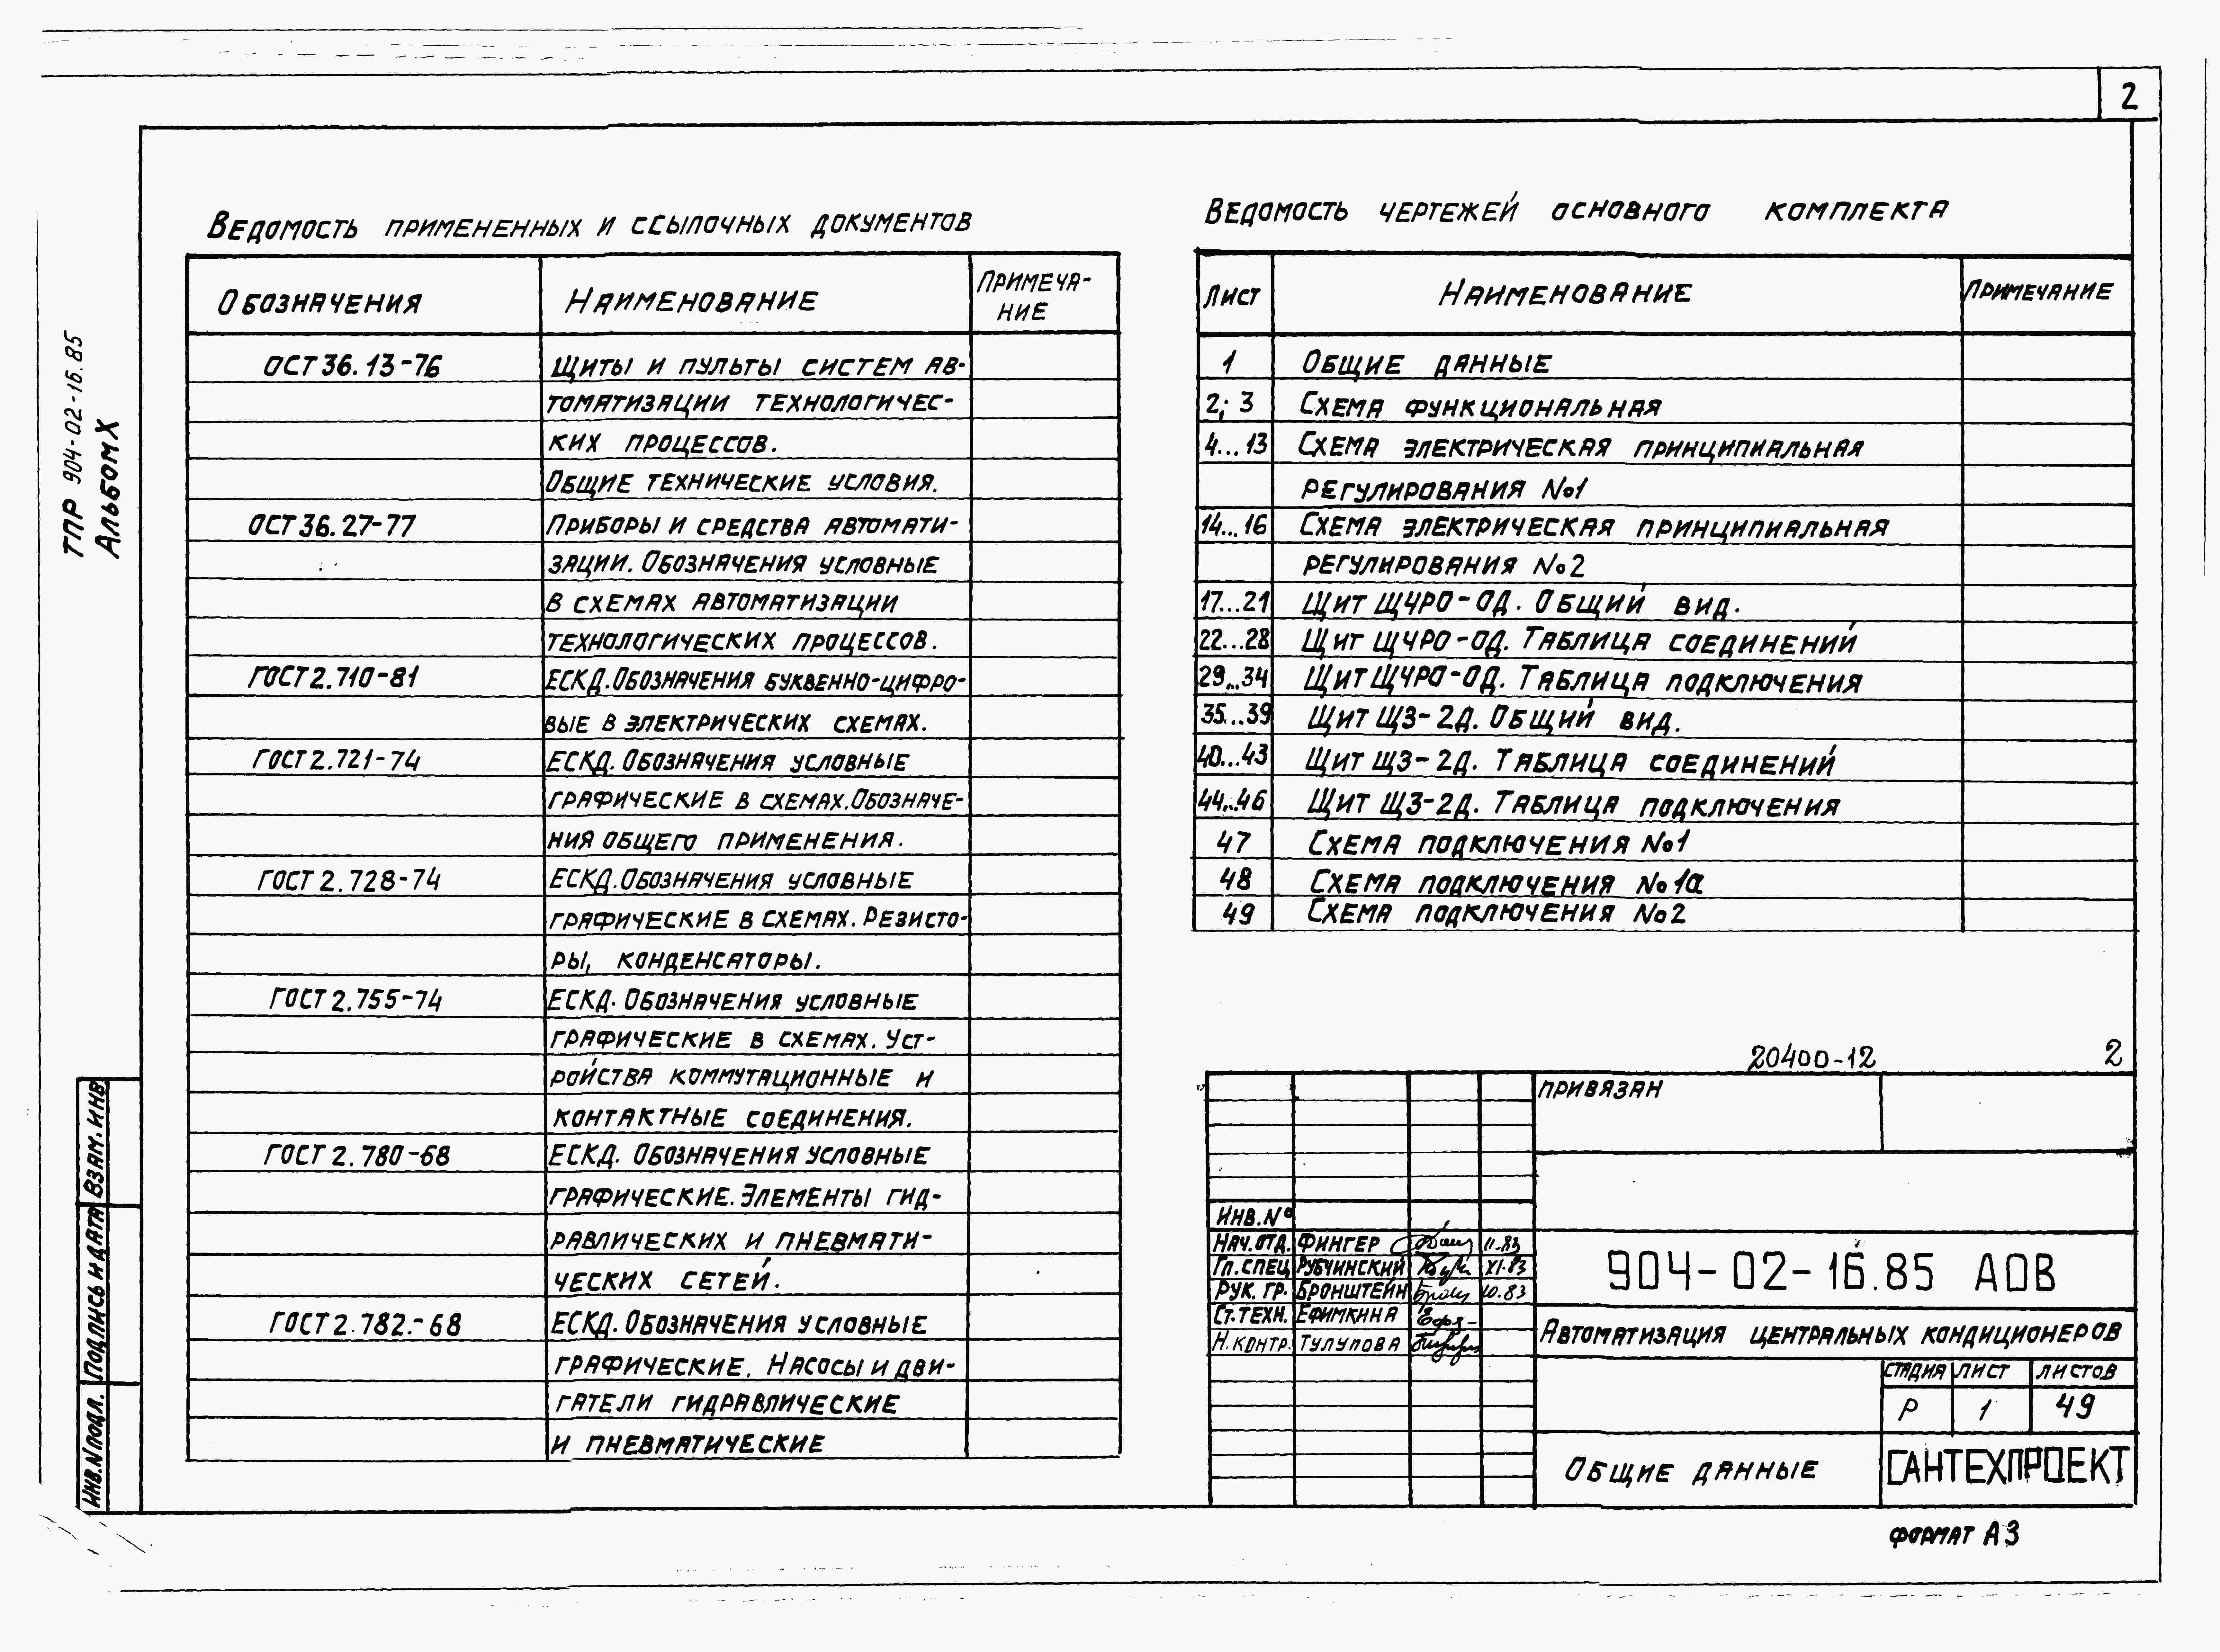 2
ТПР 904-02-16.85
Альбом X
Ведомость примененных и ссылочных документов
Обозначения Наименование Примеча-
ние
ОСТ 36.13-76 Щиты и пульты систем ав-
томатизации технологичес-
ких процессов.
Общие технические условия.
ОСТ 36.27-77 Приборы и средства автомати-
зации. Обозначения условные
в схемах автоматизации
технологических процессов.
ГОСТ 2.710-81 ЕСКД. Обозначения буквенно-цифро-
вые в электрических схемах.
ГОСТ 2.721-74 ЕСКД. Обозначения условные
графические в схемах. Обозначе-
ния общего применения.
ГОСТ 2.728-74 ЕСКД. Обозначения условные
графические в схемах. Резисто-
ры, конденсаторы.
ГОСТ 2.755-74 ЕСКД. Обозначения условные
графические в схемах. Уст-
ройства коммутационные и
контактные соединения.
ГОСТ 2.780-68 ЕСКД. Обозначения условные
графические. Элементы гид-
равлических и пневмати-
ческих сетей.
ГОСТ 2.782.-68 ЕСКД. Обозначения условные
графические. Насосы и дви-
гатели гидравлические
и пневматические
Ведомость чертежей основного комплекта
Лист Наименование Примечание
1 Общие данные
2; 3 Схема функциональная
4...13 Схема электрическая принципиальная
регулирования №1
14...16 Схема электрическая принципиальная
регулирования №2
17...21 Щит ЩЧРО-ОД. Общий вид.
22...28 Щит ЩЧРО-ОД. Таблица соединений
29...34 Щит ЩЧРО-ОД. Таблица подключения
35...39 Щит ЩЗ-2Д. Общий вид.
40...43 Щит ЩЗ-2Д. Таблица соединений
44...46 Щит ЩЗ-2Д. Таблица подключения
47 Схема подключения №1
48 Схема подключения №1а
49 Схема подключения №2
20400-12 2
Привязан
Инв. №
Нач. отд. Фингер 11.83
Гл. спец Рубчинский XI.83
Рук. гр. Бронштейн 10.83
Ст. техн. Ефимкина
Н. контр. Тулупова
904-02-16.85 АОВ
Автоматизация центральных кондиционеров
Стадия Лист Листов
Р 1 49
Общие данные
САНТЕХПРОЕКТ
Формат А3
Взам. инв
Подпись и дата
Инв. N подл.